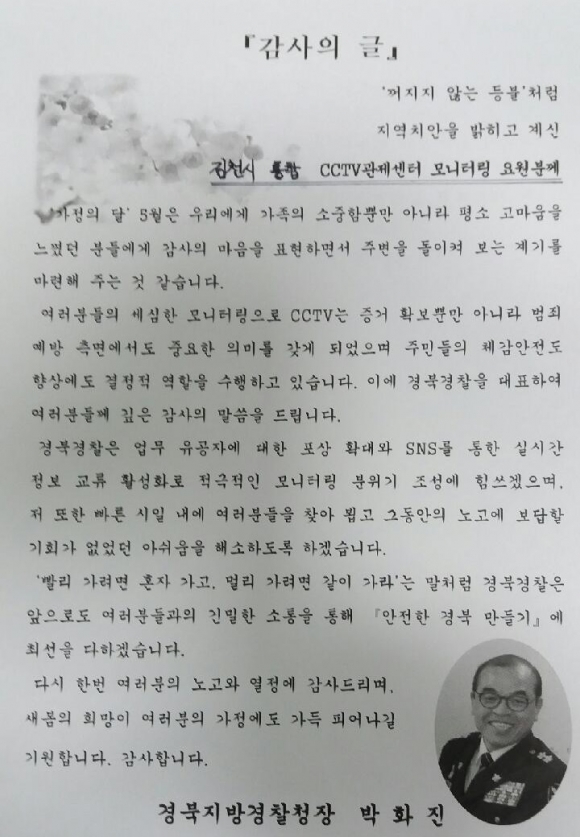 『감사의 글』
'꺼지지 않는 등불'처럼
지역치안을 밝히고 계신
김천시 통합 CCTV관제센터 모니터링 요원분께
'가정의 달' 5월은 우리에게 가족의 소중함뿐만 아니라 평소 고마움을
느꼈던 분들에게 감사의 마음을 표현하면서 주변을 돌이켜 보는 계기를
마련해 주는 것 같습니다.
여러분들의 세심한 모니터링으로 CCTV는 증거 확보뿐만 아니라 범죄
예방 측면에서도 중요한 의미를 갖게 되었으며 주민들의 체감안전도
향상에도 결정적 역할을 수행하고 있습니다. 이에 경북경찰을 대표하여
여러분들께 깊은 감사의 말씀을 드립니다.
경북경찰은 업무 유공자에 대한 포상 확대와 SNS를 통한 실시간
정보 교류 활성화로 적극적인 모니터링 분위기 조성에 힘쓰겠으며,
저 또한 빠른 시일 내에 여러분들을 찾아 뵙고 그동안의 노고에 보답할
기회가 없었던 아쉬움을 해소하도록 하겠습니다.
'빨리 가려면 혼자 가고, 멀리 가려면 같이 가라'는 말처럼 경북경찰은
앞으로도 여러분들과의 긴밀한 소통을 통해 『안전한 경북 만들기』에
최선을 다하겠습니다.
다시 한번 여러분의 노고와 열정에 감사드리며,
새봄의 희망이 여러분의 가정에도 가득 피어나길
기원합니다. 감사합니다.
경북지방경찰청장 박화진